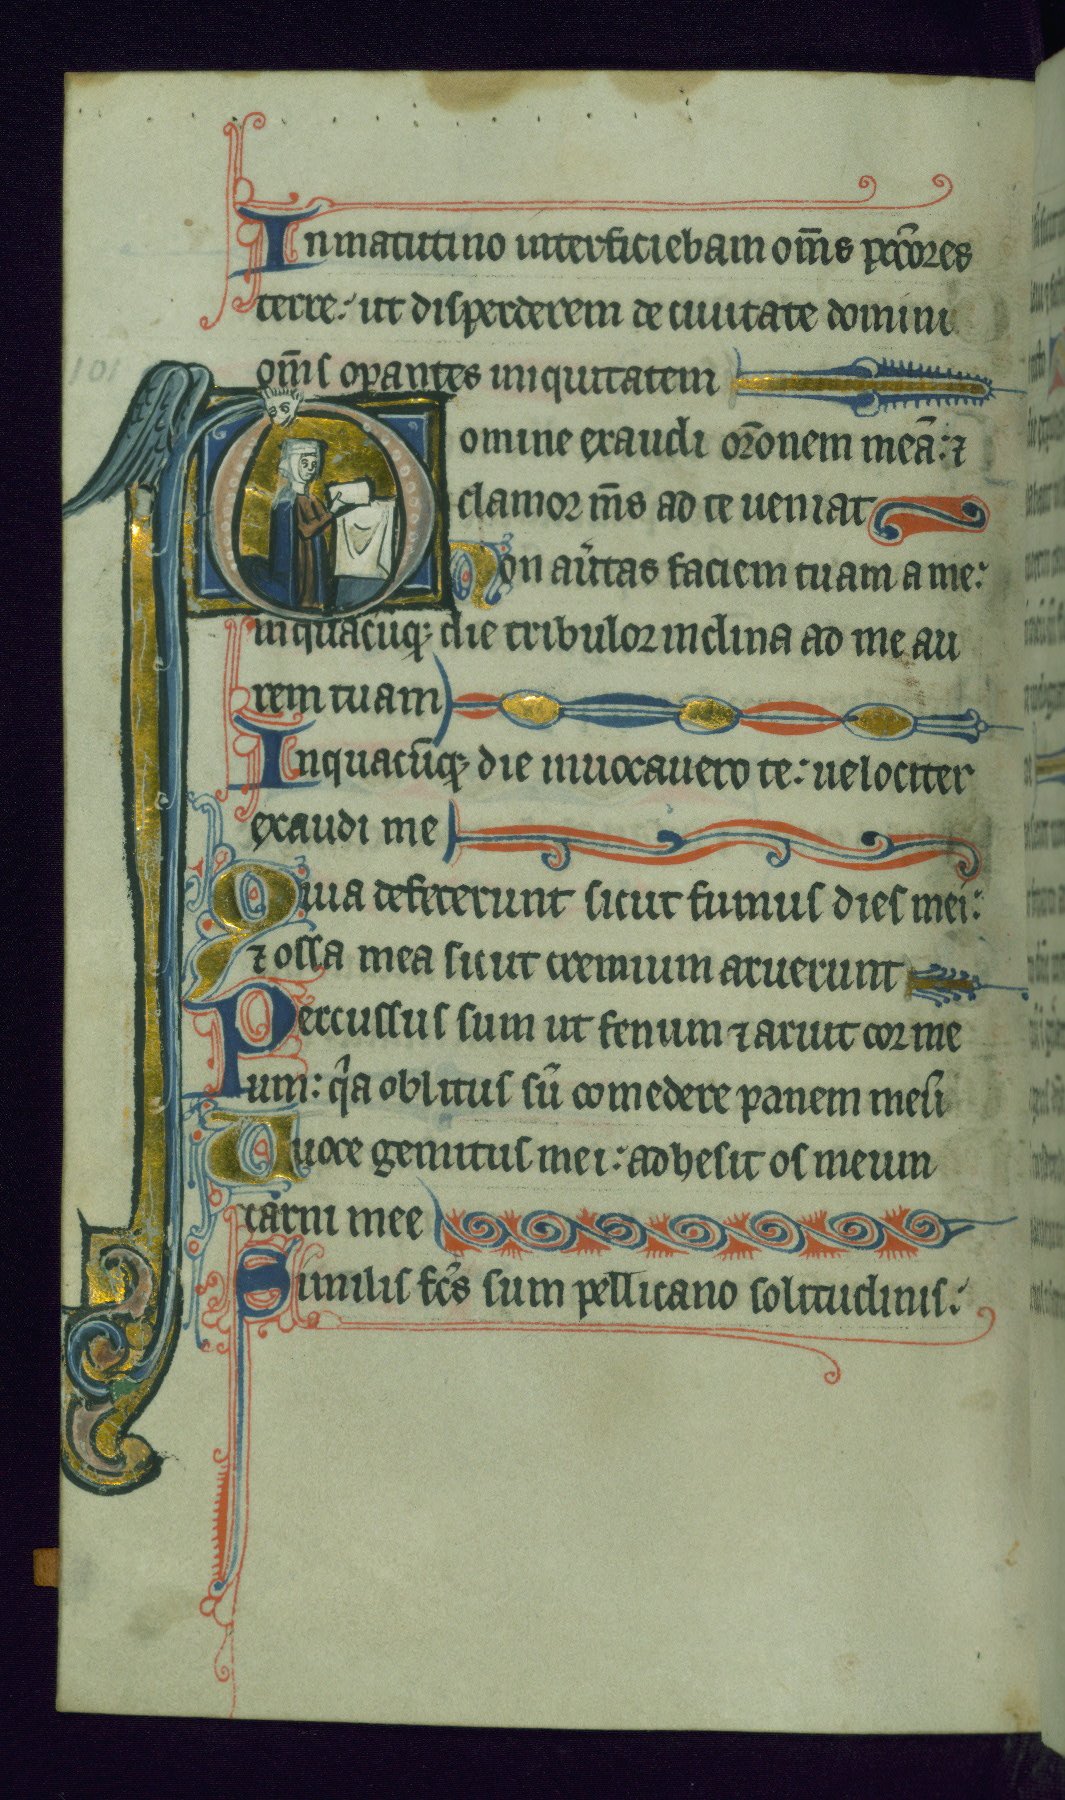 In matutino interficiebam om̄s pccōres
terre: ut disperderem de ciuitate domini
om̄s opantes iniquitatem
101
Domine exaudi or̄onem meā: ⁊
clamor m̄s ad te ueniat
Non au̾tas faciem tuam a me:
inquacūq; die tribulor inclina ad me au
rem tuam
Inquacūq; die inuocauero te: uelociter
exaudi me
Quia defecerunt sicut fumus dies mei:
⁊ ossa mea sicut cremium aruerunt
Percussus sum ut fenum ⁊ aruit cor me
um: qͥa oblitus sū comedere panem meū
A uoce gemitus mei: adhesit os meum
carni mee
Similis fc̄s sum pellicano solitudinis: